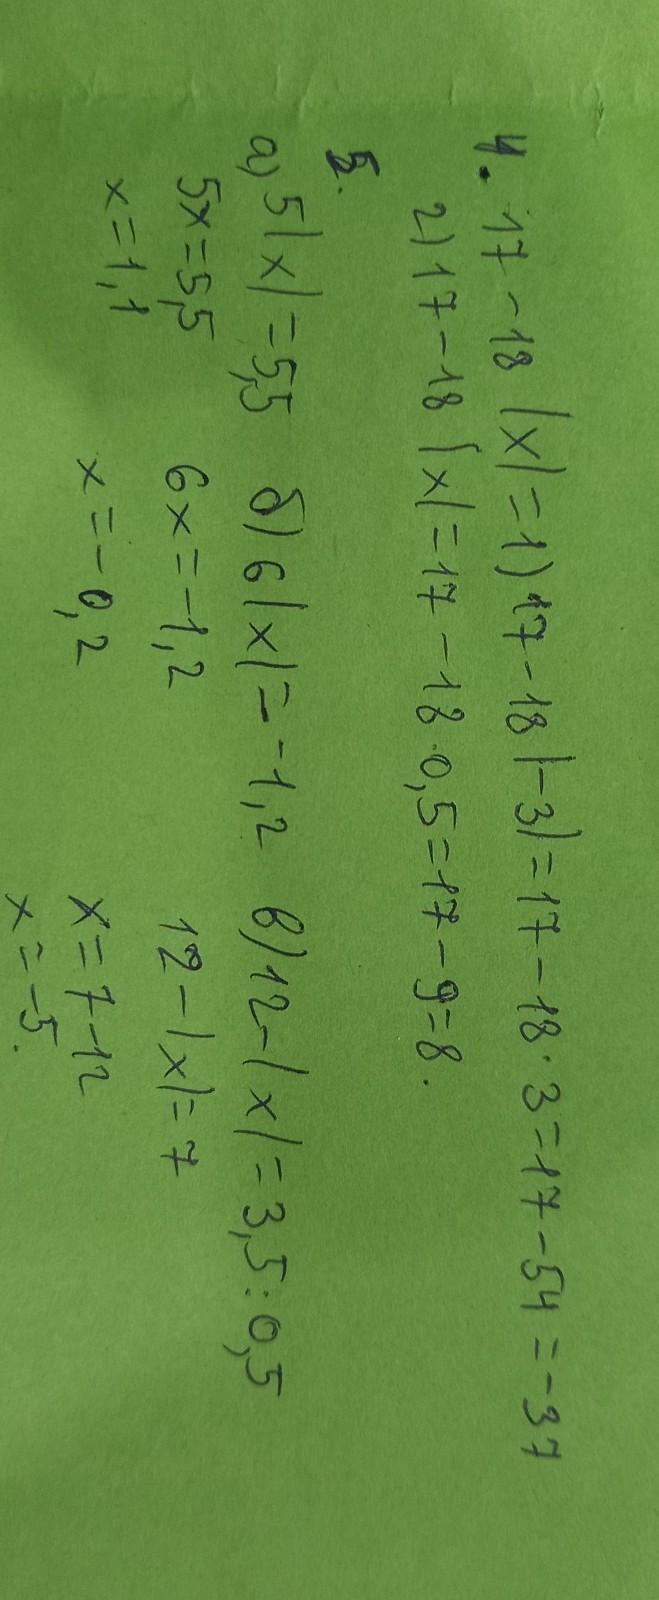 4. 17 - 18 |x| = 1) 17 - 18 |-3| = 17 - 18 · 3 = 17 - 54 = -37
2) 17 - 18 |x| = 17 - 18 · 0,5 = 17 - 9 = 8.
5.
а) 5|x| = 5,5 б) 6|x| = -1,2 в) 12 - |x| = 3,5 : 0,5
5x = 5,5 6x = -1,2 12 - |x| = 7
x = 1,1 x = -0,2 x = 7 - 12
x = -5.